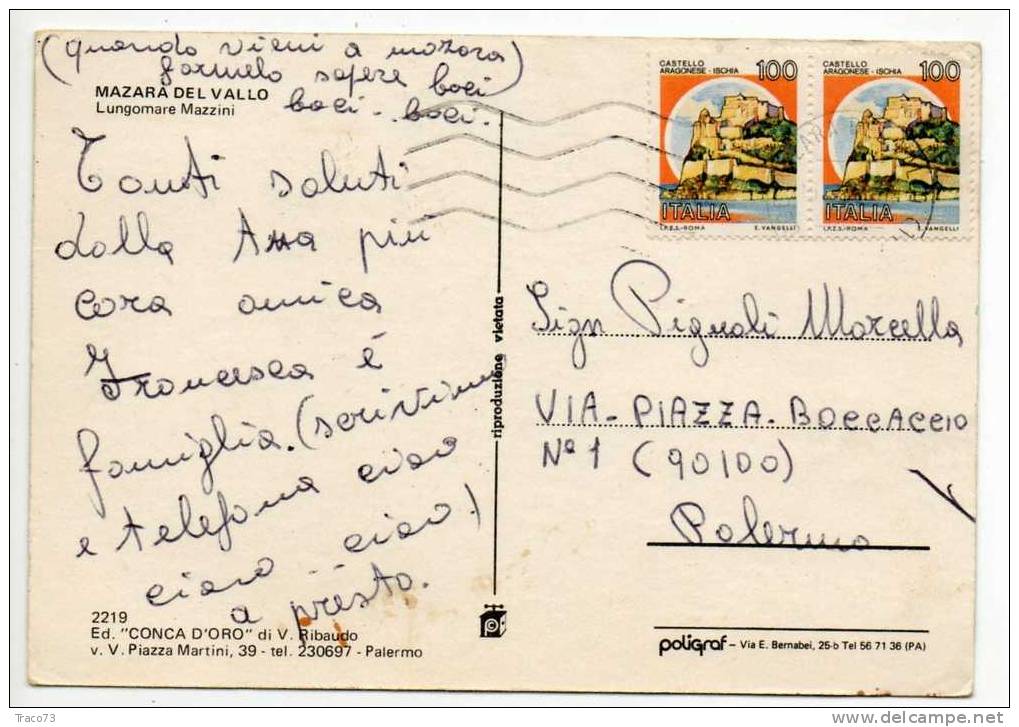 (quando vieni a mazara)
formelo sapere baci
baci - baci.
MAZARA DEL VALLO
Lungomare Mazzini
Tanti saluti
dalla tua più
cara amica
Francesca e
famiglia. (scrivimi
e telefona ciao
ciao ciao)
a presto.
2219
Ed. "CONCA D'ORO" di V. Ribaudo
v. V. Piazza Martini, 39 - tel. 230697 - Palermo
riproduzione vietata
CASTELLO ARAGONESE - ISCHIA 100
ITALIA
I.P.Z.S.-ROMA E. VANGELLI
CASTELLO ARAGONESE - ISCHIA 100
ITALIA
I.P.Z.S.-ROMA E. VANGELLI
Sign Pignali Marcella
VIA - PIAZZA - BOCCACCIO
Nº 1 (90100)
Palermo
poligraf - Via E. Bernabei, 25-b Tel 56 71 36 (PA)
Traco73
delcampe.net